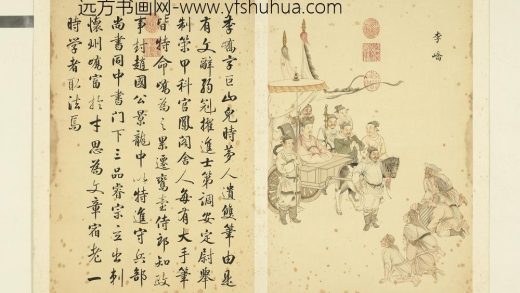 远方书画网-www.yfshuhua.com
李嶠
李嶠字巨山兒時夢人遺雙筆由是
有文辭弱冠擢進士第調安定尉舉
制策甲科官鳳閣舍人每有大手筆
皆特命嶠為之累遷鸞臺侍郎知政
事封趙國公景龍中以特進守兵部
尚書同中書門下三品睿宗立出刺
懷州嶠富於才思為文章宿老一
時學者取法焉